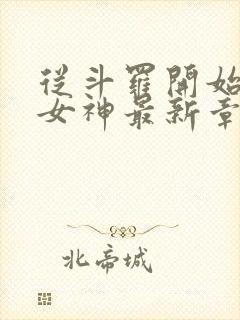 從斗羅開始
女神最新章
北帝城